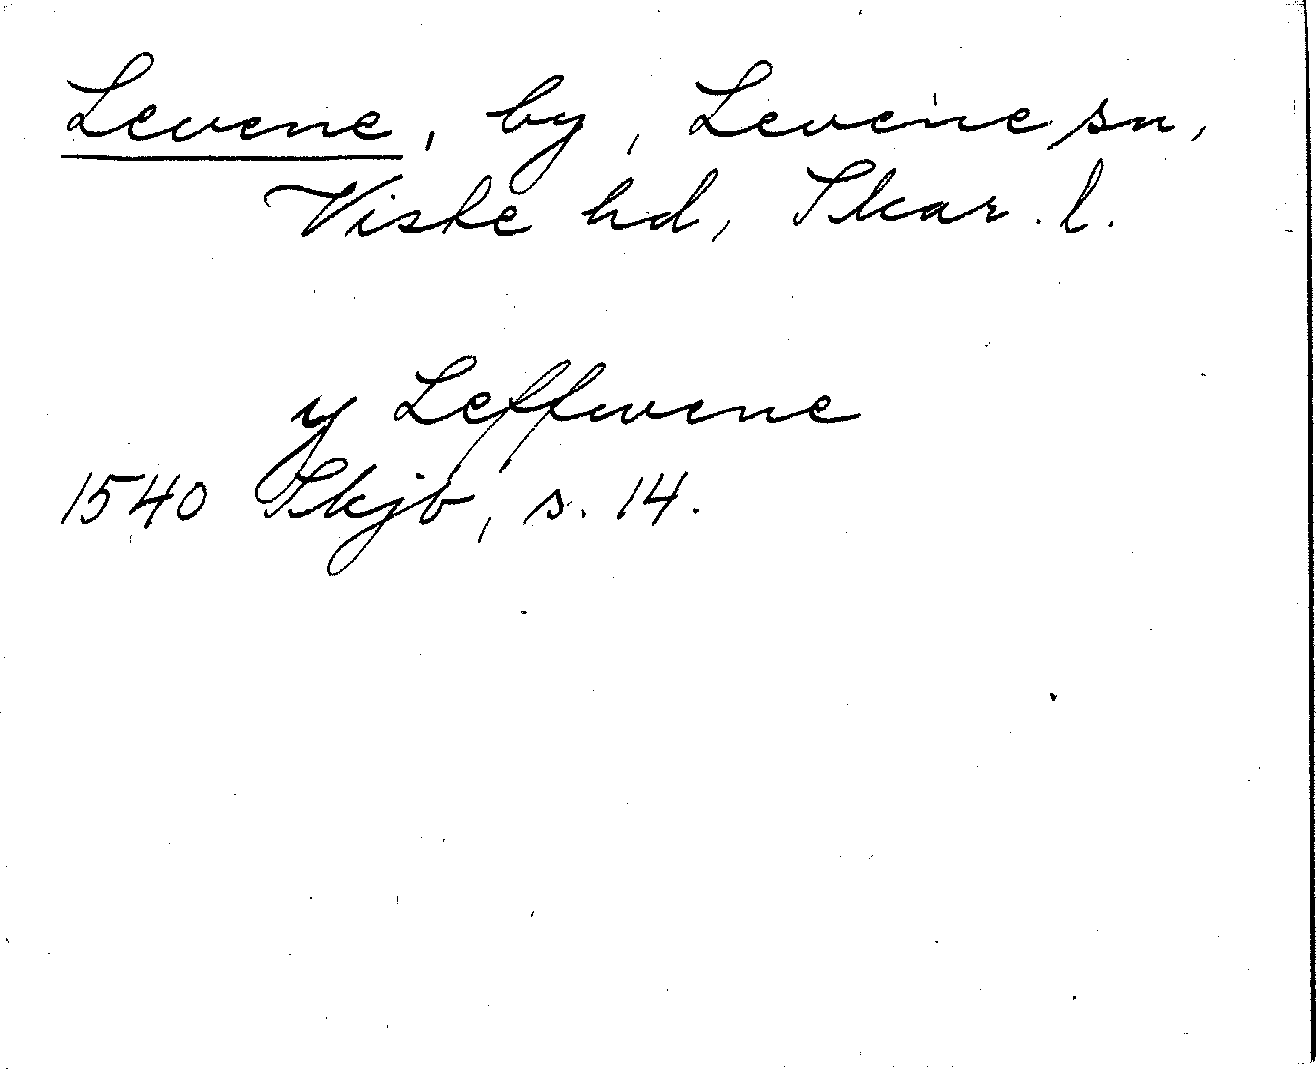 Levene, by, Levene sn,
Viske hd, Skar. l.
y Leffwene
1540 Skjb, s. 14.